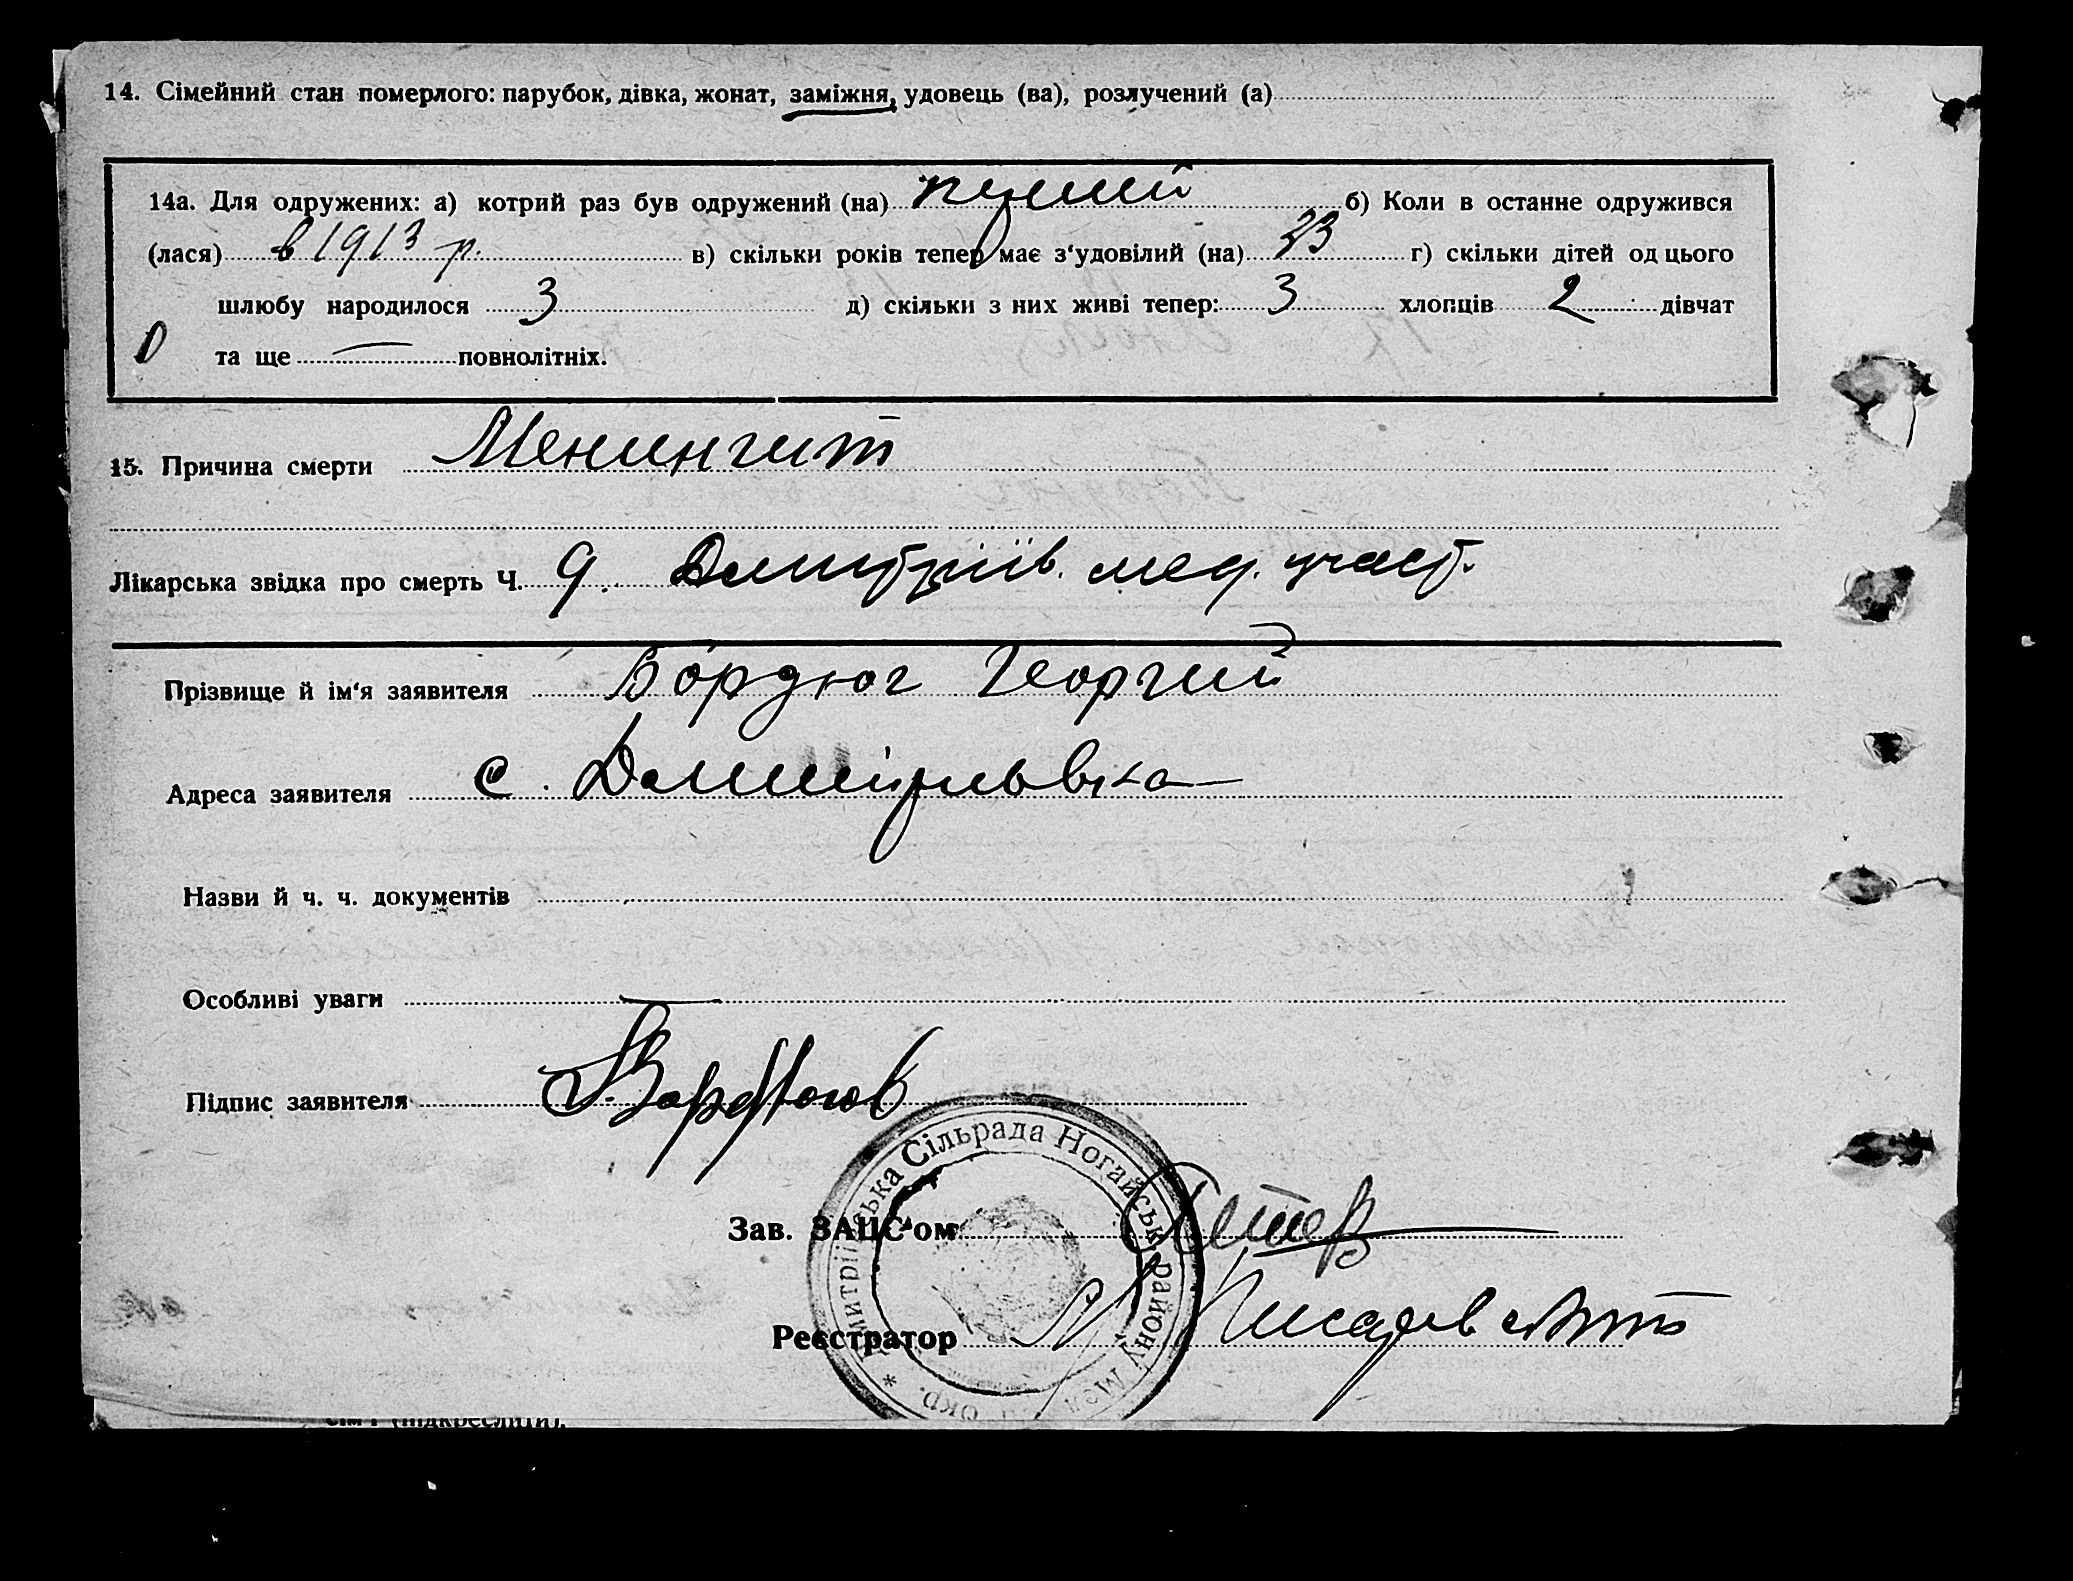 14. Сімейний стан померлого: парубок, дівка, жонат, заміжня, удовець (ва), розлучений (а)
14а. Для одружених: а) котрий раз був одружений (на) перший б) Коли в останне одружився
(лася) в 1913 р. в) скільки років тепер має з'удовілий (на) 33 г) скільки дітей од цього
шлюбу народилося 3 д) скільки з них живі тепер: 3 хлопців 2 дівчат
та ще — повнолітніх.
15. Причина смерти Менингит
Лікарська звідка про смерть Ч. 9. Дмитріїв. мед. участ.
Прізвище й ім'я заявителя Бордюг Георгий
Адреса заявителя с.
Назви й ч. ч. документів
Особливі уваги —
Підпис заявителя
Дмитріївська Сільрада Ногайськ. району окр. *
Зав. ЗАЦС'ом
Реєстратор
сім'ї (підкреслити).